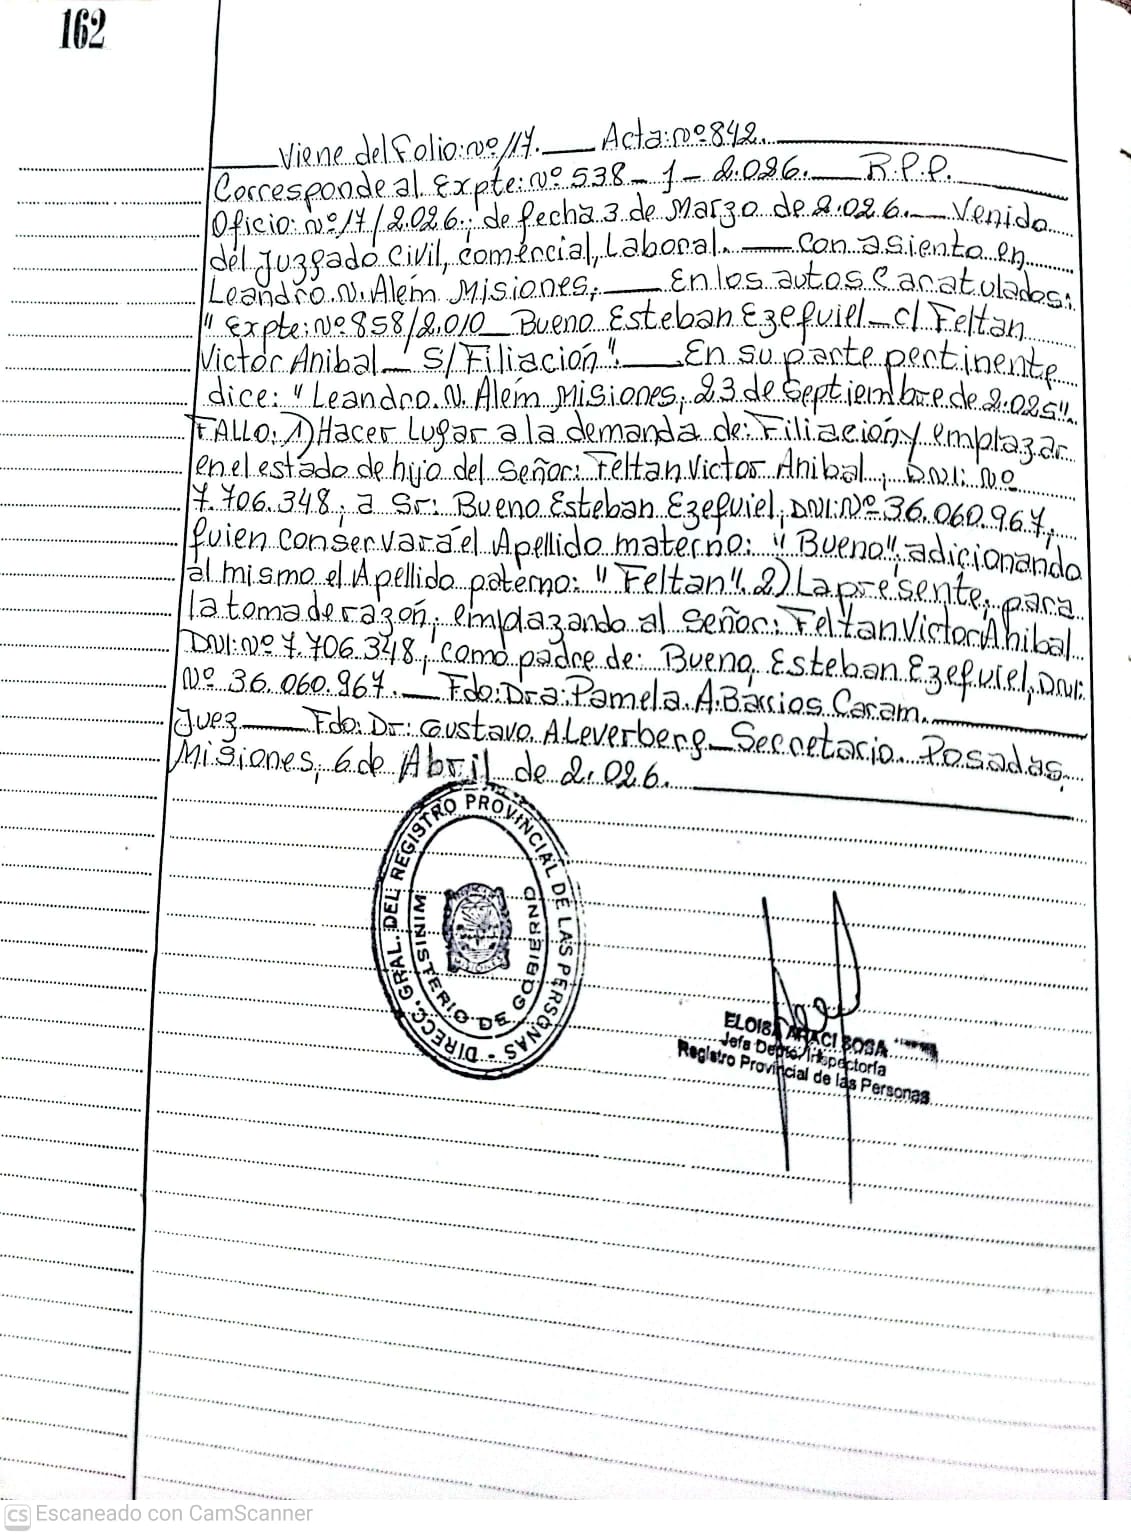 162
Viene del Folio: Nº 117. Acta: Nº 842.
Corresponde al Expte: Nº 538-1-2.026. R.P.P.
Oficio: Nº 17/2.026.; de fecha 3 de Marzo de 2.026. Venido
del Juzgado Civil, comercial, Laboral. con asiento en
Leandro. N. Além Misiones; En los autos Caratulados:
" Expte: Nº 858/2.010 Bueno Esteban Ezequiel c/ Feltan
Victor Anibal S/Filiación". En su parte pertinente
dice: "Leandro. N. Além Misiones, 23 de Septiembre de 2.025".
FALLO: 1) Hacer Lugar a la demanda de: Filiación y emplazar
en el estado de hijo del Señor: Feltan Victor Anibal, DNI: Nº
7.706.348, a Sr: Bueno Esteban Ezequiel, DNI: Nº 36.060.967,
quien conservará él Apellido materno: "Bueno", adicionando
al mismo el Apellido paterno: "Feltan". 2) La presente, para
la toma de razón, emplazando al Señor: Feltan Victor Anibal
DNI: Nº 7.706.348, como padre de: Bueno, Esteban Ezequiel, DNI:
Nº 36.060.967. Fdo: Dra: Pamela. A. Barrios Caram.
Juez Fdo: Dr: Gustavo. A Leverberg Secretario. Posadas,
Misiones, 6 de Abril de 2.026.
DIRECC. GRAL. DEL REGISTRO PROVINCIAL DE LAS PERSONAS -
MINISTERIO DE GOBIERNO
MISIONES
ELOISA ARACI SOSA
Jefa Depto. Inspectoría
Registro Provincial de las Personas
CS Escaneado con CamScanner